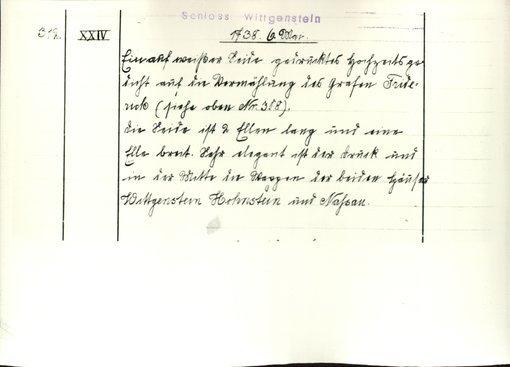 Schloss Wittgenstein
XXIV
1738. 6. Mai.
Ein auf weißer Seide gedrucktes Hochzeitsge-
dicht auf die Vermählung des Grafen Fride-
rick (siehe oben Nr. 318).
Die Seide ist 2 Ellen lang und eine
Elle breit. Sehr elegant ist der Druck und
in der Mitte die Wappen der beiden Häuser
Wittgenstein Hohnstein und Naßau.